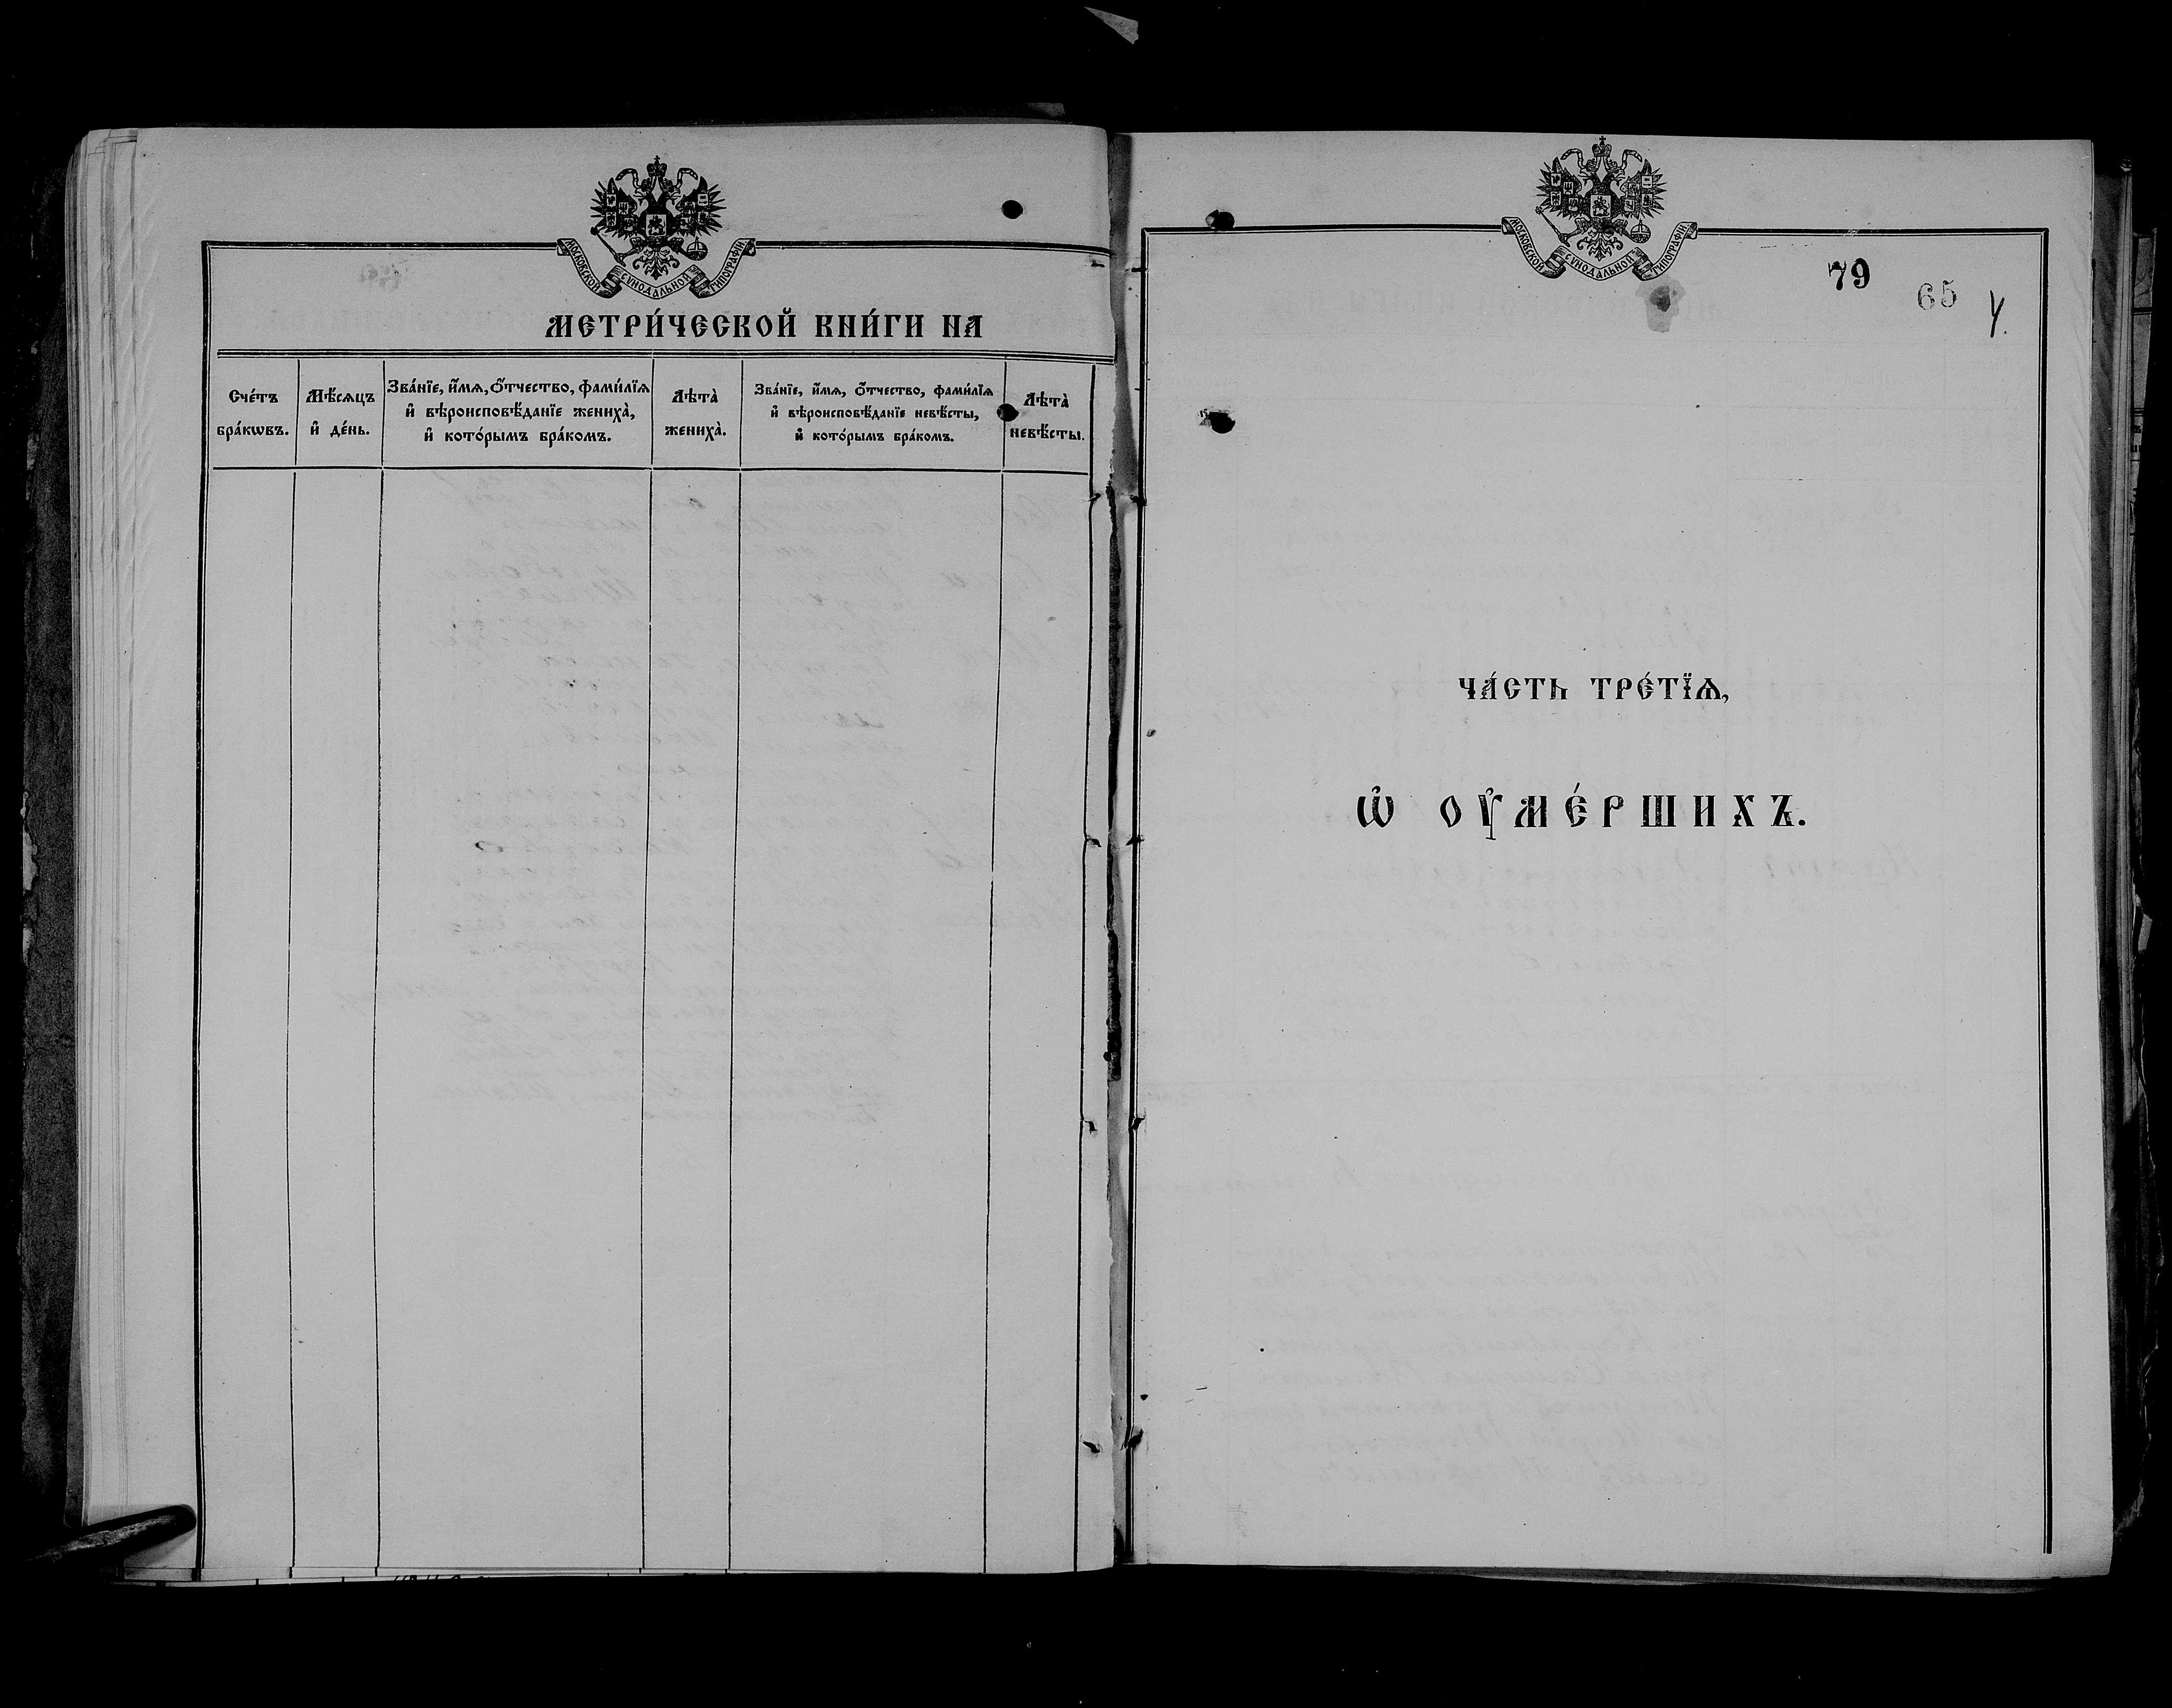 МОСКОВСКОЙ СѴНОДАЛЬНОЙ ТИПОГРАФІИ
МЕТРИ́ЧЕСКОЙ КНИ́ГИ НА
Сче́тъ
бра́кѡвъ.
Мѣ́сѧцъ
и҆ де́нь.
Зва́нїе, и҆́мѧ, ѻ҆́тчество, фамѝлїѧ
и҆ вѣроисповѣ́данїе женихà,
и҆ кото́рымъ бра́комъ.
Лѣтà
женихà.
Зва́нїе, и҆́мѧ, ѻ҆́тчество, фами́лїѧ
и҆ вѣроисповѣ́данїе невѣ́сты,
и҆ кото́рымъ бра́комъ.
Лѣтà
невѣ́сты.
МОСКОВСКОЙ СѴНОДАЛЬНОЙ ТИПОГРАФІИ
79
65
У.
ЧА́СТЬ ТРЕ́ТЇѦ,
Ѡ҆ ОУ҆МЕ́РШИХЪ.